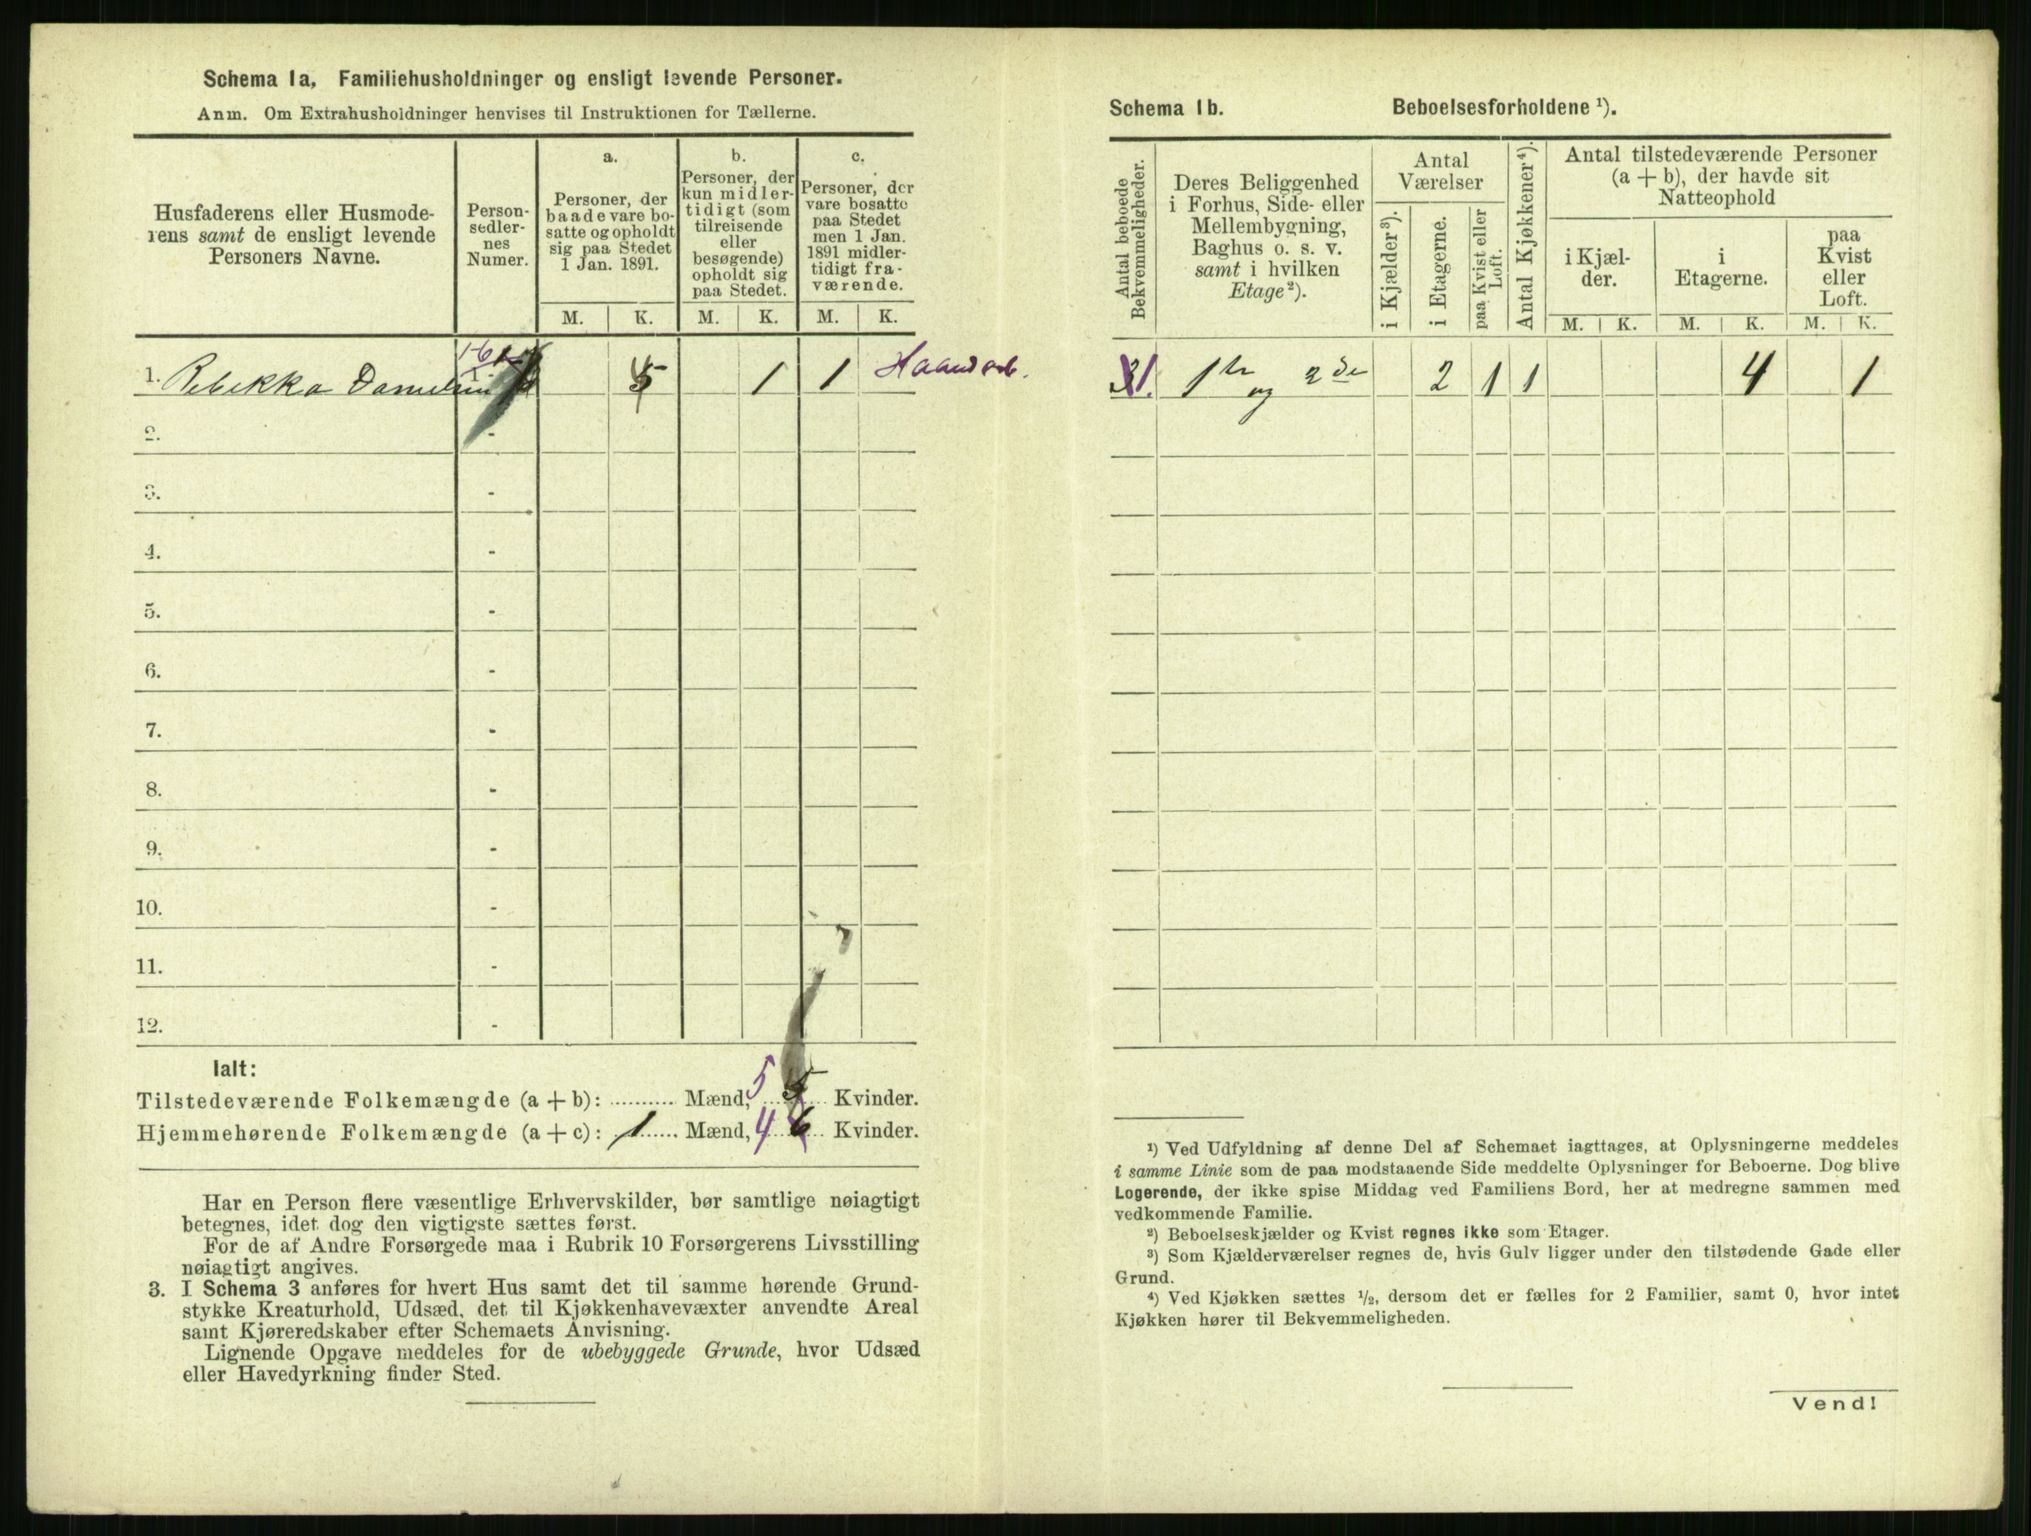 Schema 1a, Familiehusholdninger og ensligt levende Personer.
Anm. Om Extrahusholdninger henvises til Instruktionen for Tællerne.
Husfaderens eller Husmode-
rens samt de ensligt levende
Personers Navne.
Person-
sedler-
nes
Numer.
a.
Personer, der
baade vare bo-
satte og opholdt
sig paa Stedet
1 Jan. 1891.
b.
Personer, der
kun midler-
tidigt (som
tilreisende
eller
besøgende)
opholdt sig
paa Stedet.
c.
Personer, der
vare bosatte
paa Stedet
men 1 Jan.
1891 midler-
tidigt fra-
værende.
M. K. M. K. M. K.
1. Rebekka 1-6 1 1 Haandarb.
2. -
3. -
4. -
5. -
6. -
7. -
8. -
9. -
10. -
11. -
12. -
Ialt:
Tilstedeværende Folkemængde (a + b): .......... Mænd, 5 5 Kvinder.
Hjemmehørende Folkemængde (a + c): 1 Mænd, 4 6 Kvinder.
Har en Person flere væsentlige Erhvervskilder, bør samtlige nøiagtigt
betegnes, idet dog den vigtigste sættes først.
For de af Andre Forsørgede maa i Rubrik 10 Forsørgerens Livsstilling
nøiagtigt angives.
3. I Schema 3 anføres for hvert Hus samt det til samme hørende Grund-
stykke Kreaturhold, Udsæd, det til Kjøkkenhavevæxter anvendte Areal
samt Kjøreredskaber efter Schemaets Anvisning.
Lignende Opgave meddeles for de ubebyggede Grunde, hvor Udsæd
eller Havedyrkning finder Sted.
Schema 1b. Beboelsesforholdene ¹).
Antal beboede
Bekvemmeligheder.
Deres Beliggenhed
i Forhus, Side- eller
Mellembygning,
Baghus o. s. v.
samt i hvilken
Etage²).
Antal
Værelser
i Kjælder³).
i Etagerne.
paa Kvist eller
Loft.
Antal Kjøkkener⁴).
Antal tilstedeværende Personer
(a + b), der havde sit
Natteophold
i Kjæl-
der.
i
Etagerne.
paa
Kvist
eller
Loft.
M. K. M. K. M. K.
31. 1ste og 2 de 2 1 1 4 1
¹) Ved Udfyldning af denne Del af Schemaet iagttages, at Oplysningerne meddeles
i samme Linie som de paa modstaaende Side meddelte Oplysninger for Beboerne. Dog blive
Logerende, der ikke spise Middag ved Familiens Bord, her at medregne sammen med
vedkommende Familie.
²) Beboelseskjælder og Kvist regnes ikke som Etager.
³) Som Kjælderværelser regnes de, hvis Gulv ligger under den tilstødende Gade eller
Grund.
⁴) Ved Kjøkken sættes ½, dersom det er fælles for 2 Familier, samt 0, hvor intet
Kjøkken hører til Bekvemmeligheden.
Vend!